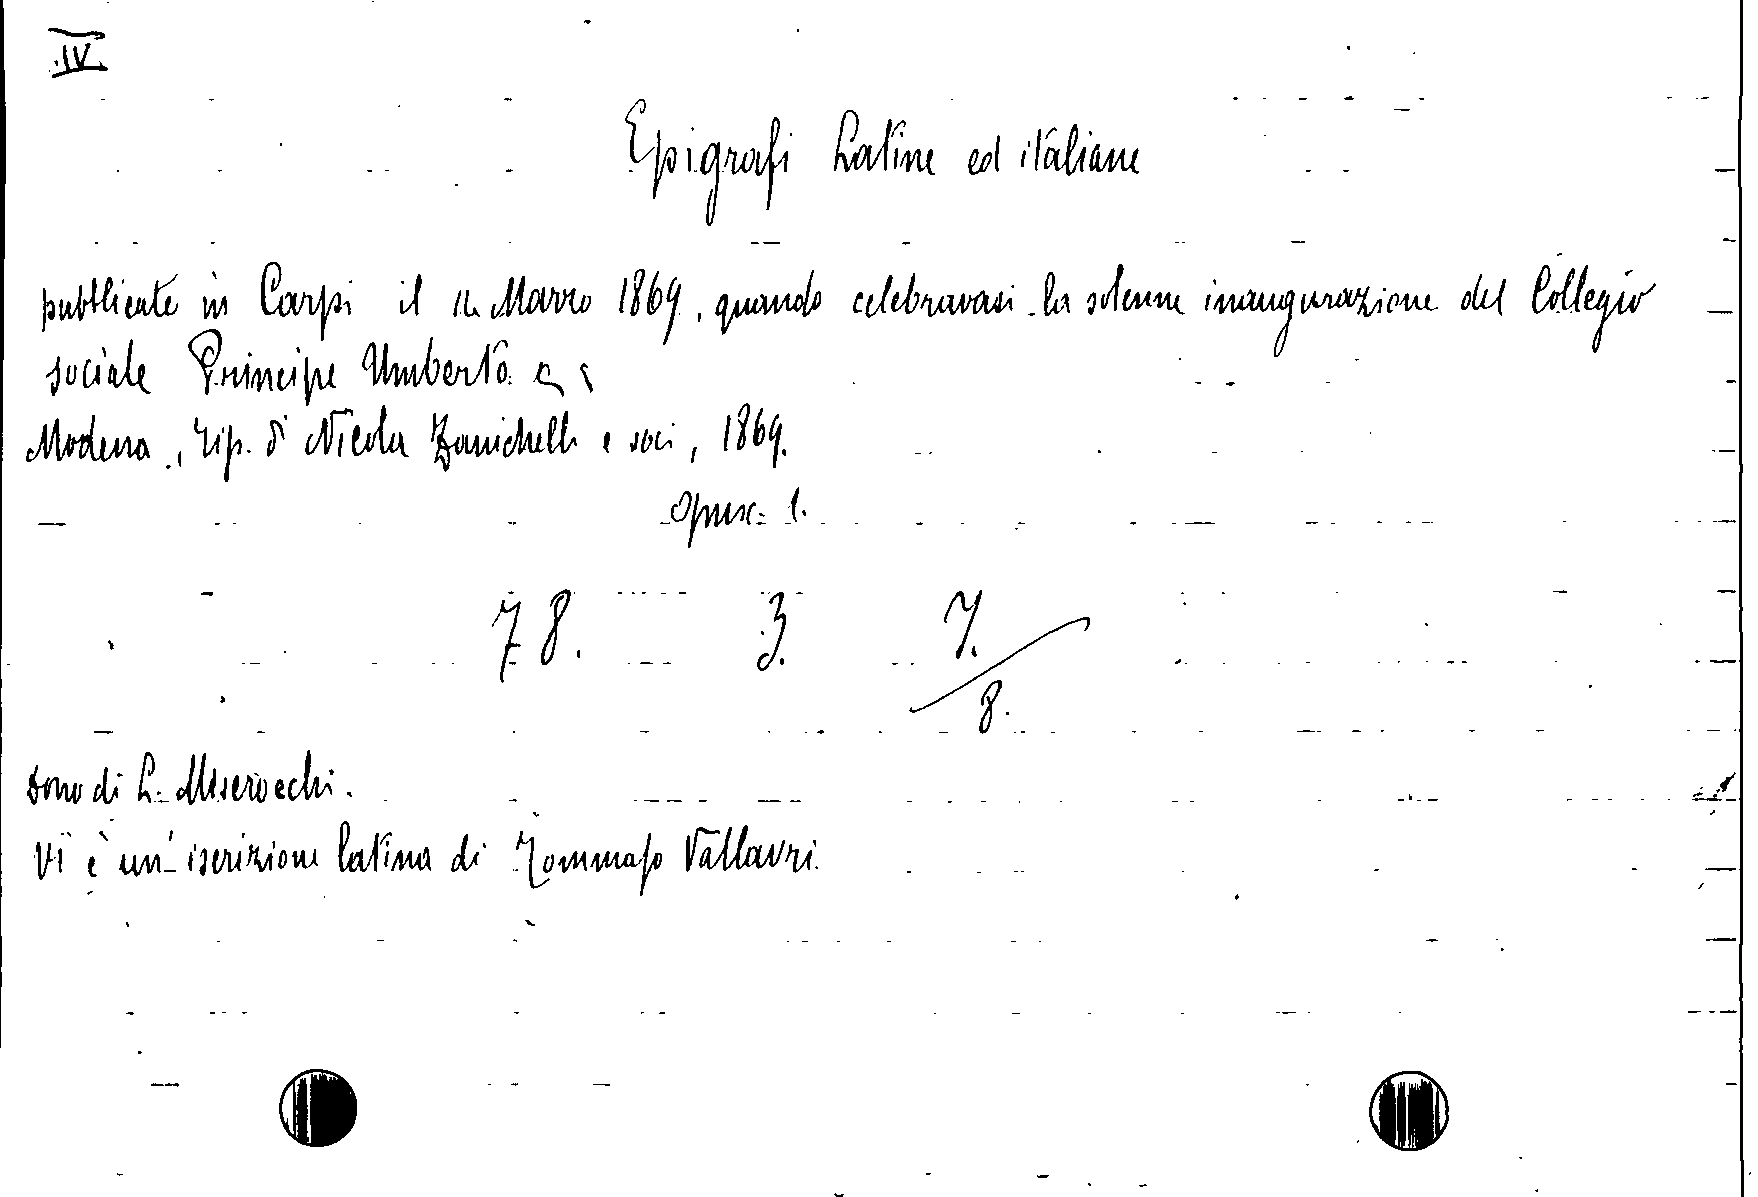 IV.
Epigrafi Latine ed italiane
pubblicate in Carpi il Marzo 1869, quando celebravasi la solenne inaugurazione del Collegio
sociale Principe Umberto.
Modena, Tip. di Nicola Zanichelli e soci, 1869.
Opusc. 1.
78. 3. 7.
8.
Dono di L. Miserocchi.
Vi è un' iscrizione latina di Tommaso Vallauri.